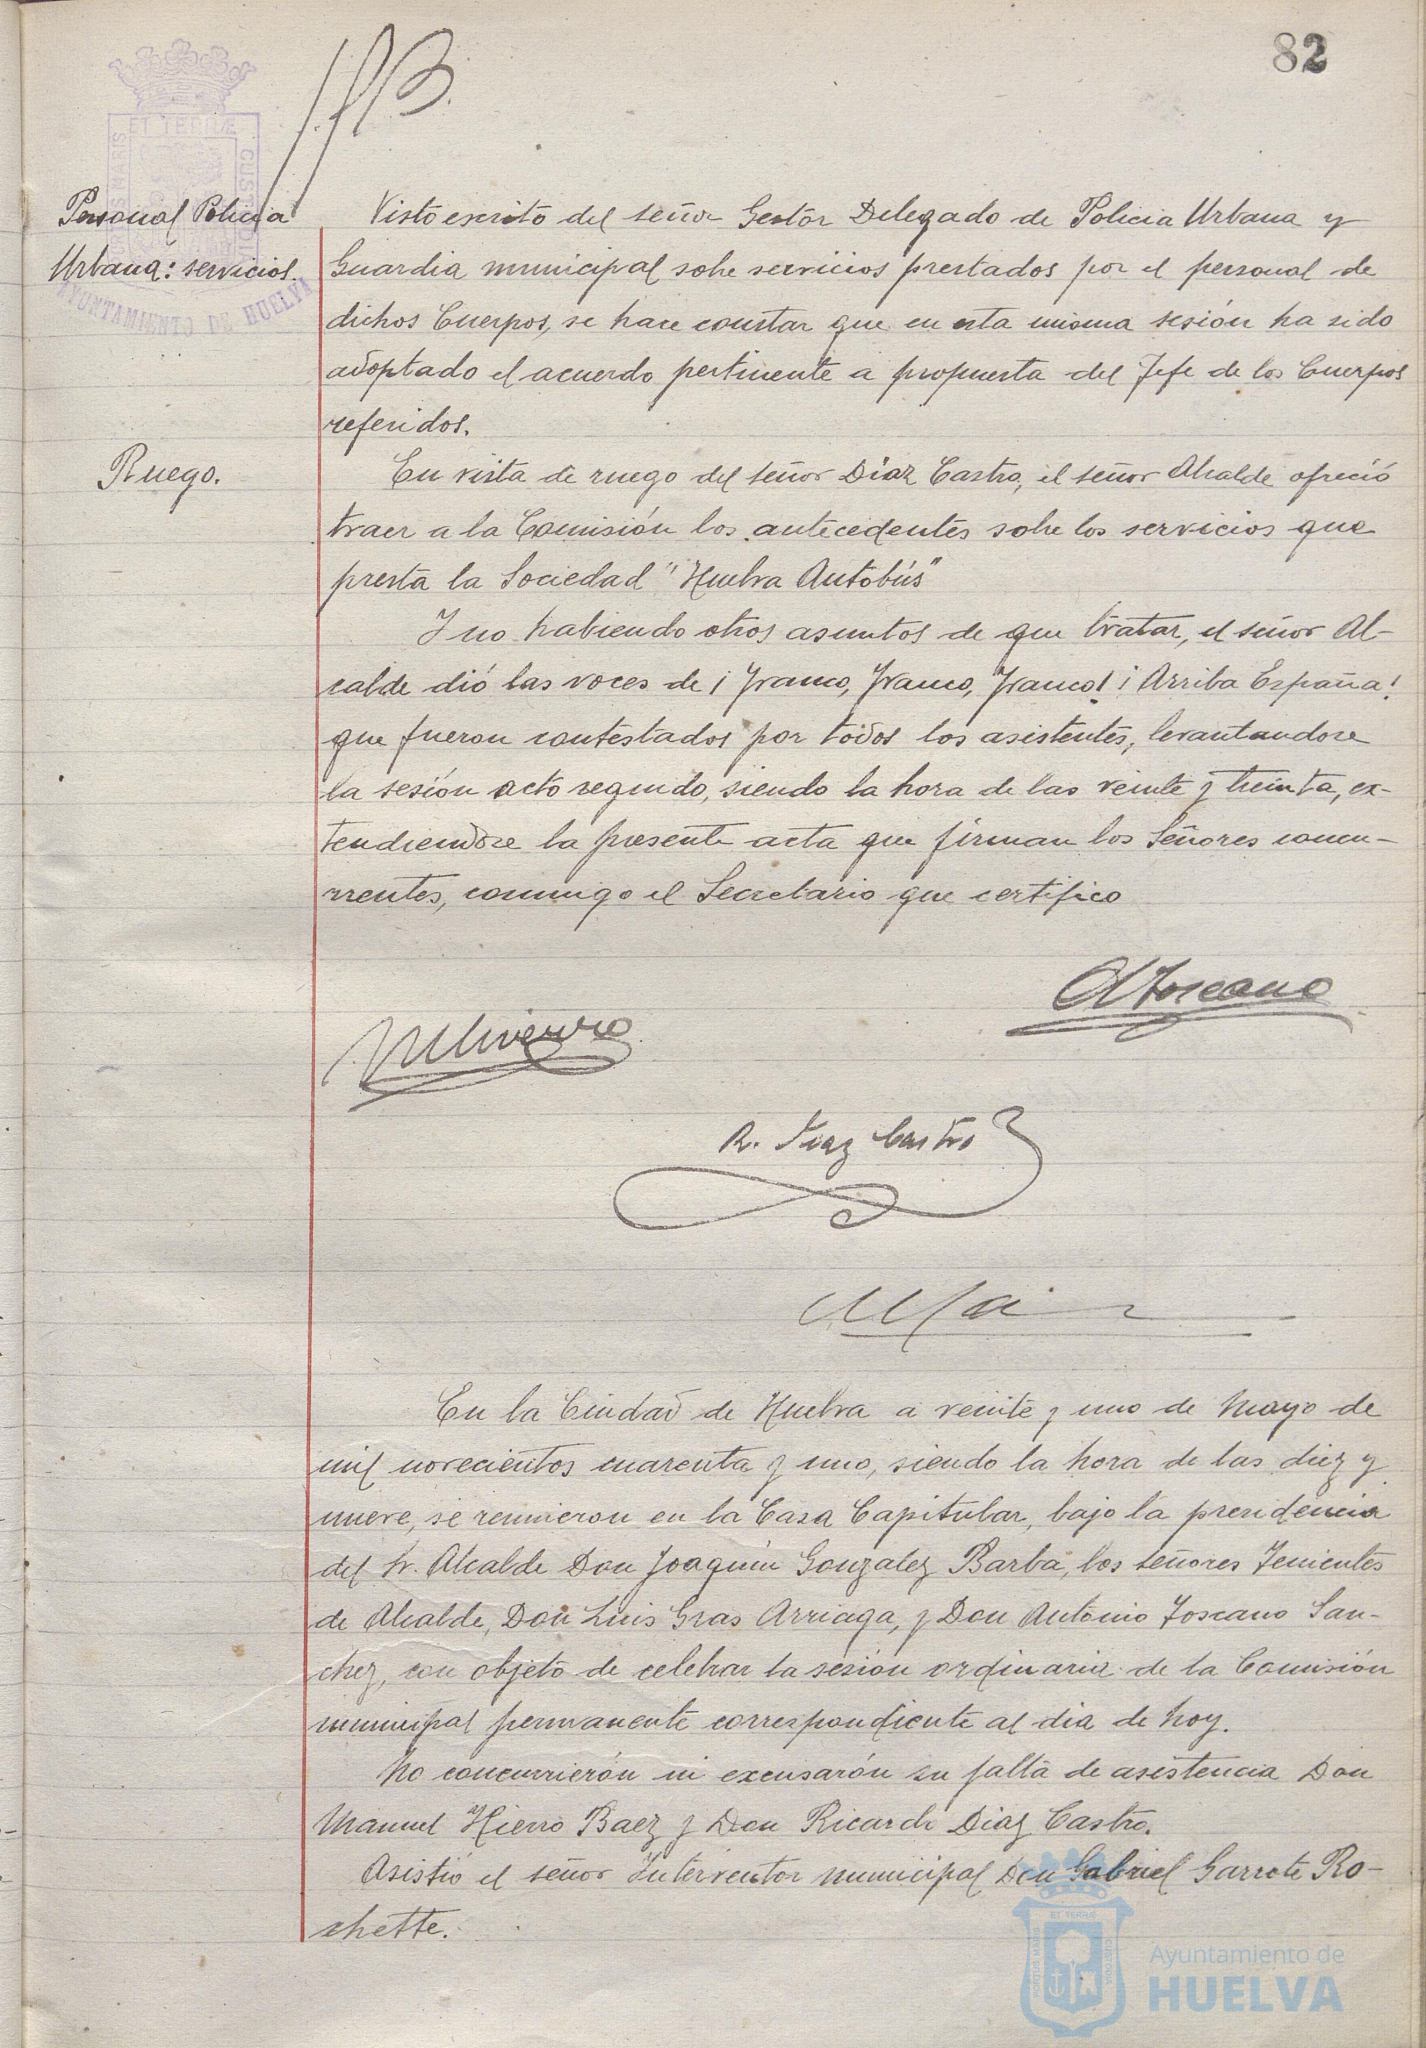 82
Personal Policia
Urbana: servicios.
Visto escrito del señor Gestor Delegado de Policia Urbana y
Guardia municipal sobre servicios prestados por el personal de
dichos Cuerpos, se hace constar que en esta misma sesión ha sido
adoptado el acuerdo pertinente a propuesta del Jefe de los Cuerpos
referidos.
Ruego.
En vista de ruego del señor Diaz Castro, el señor Alcalde ofreció
traer a la Comisión los antecedentes sobre los servicios que
presta la Sociedad "Huelva Autobús"
Y no habiendo otros asuntos de que tratar, el señor Al-
calde dió las voces de ¡Franco, Franco, Franco! ¡Arriba España!
que fueron contestados por todos los asistentes, levantandose
la sesión acto seguido, siendo la hora de las veinte y treinta, ex-
tendiendose la presente acta que firman los Señores concu-
rrentes, conmigo el Secretario que certifico
A Toscano
R. Diaz Castro
En la Ciudad de Huelva a veinte y uno de Mayo de
mil novecientos cuarenta y uno, siendo la hora de las diez y
nueve, se reunieron en la Casa Capitular, bajo la presidencia
del Sr. Alcalde Don Joaquin Gonzalez Barba, los señores Tenientes
de Alcalde, Don Luis Gras Arriaga, y Don Antonio Toscano San-
chez, con objeto de celebrar la sesión ordinaria de la Comisión
municipal permanente correspondiente al dia de hoy.
No concurrierón ni excusarón su falta de asistencia Don
Manuel Hierro Baez y Don Ricardo Diaz Castro.
Asistió el señor Interventor municipal Don Gabriel Garrote Ro-
chette.
ET TERRÆ
AYUNTAMIENTO DE HUELVA
Ayuntamiento de
HUELVA